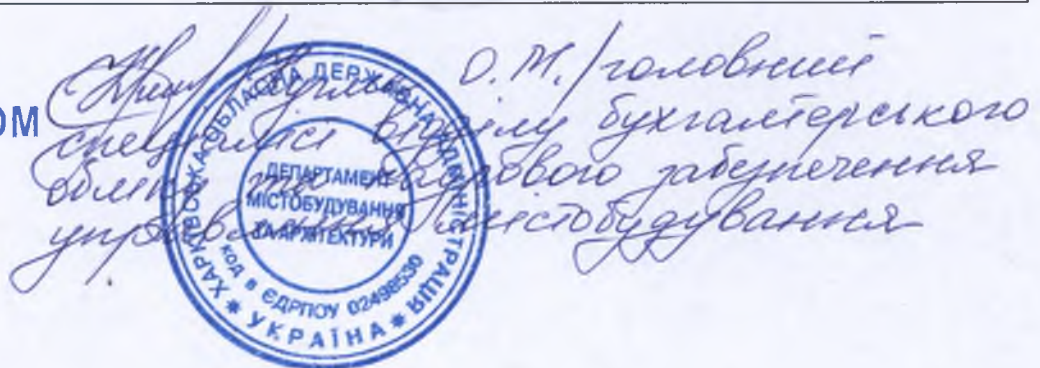 О.М./головний
ОМ
спеціаліст відділу бухгалтерського
обліку та кадрового забезпечення
управління містобудування
ХАРКІВСЬКА ОБЛАСНА ДЕРЖАВНА АДМІНІСТРАЦІЯ
ДЕПАРТАМЕНТ
МІСТОБУДУВАННЯ
ТА АРХІТЕКТУРИ
код в ЄДРПОУ 02498530
* УКРАЇНА *